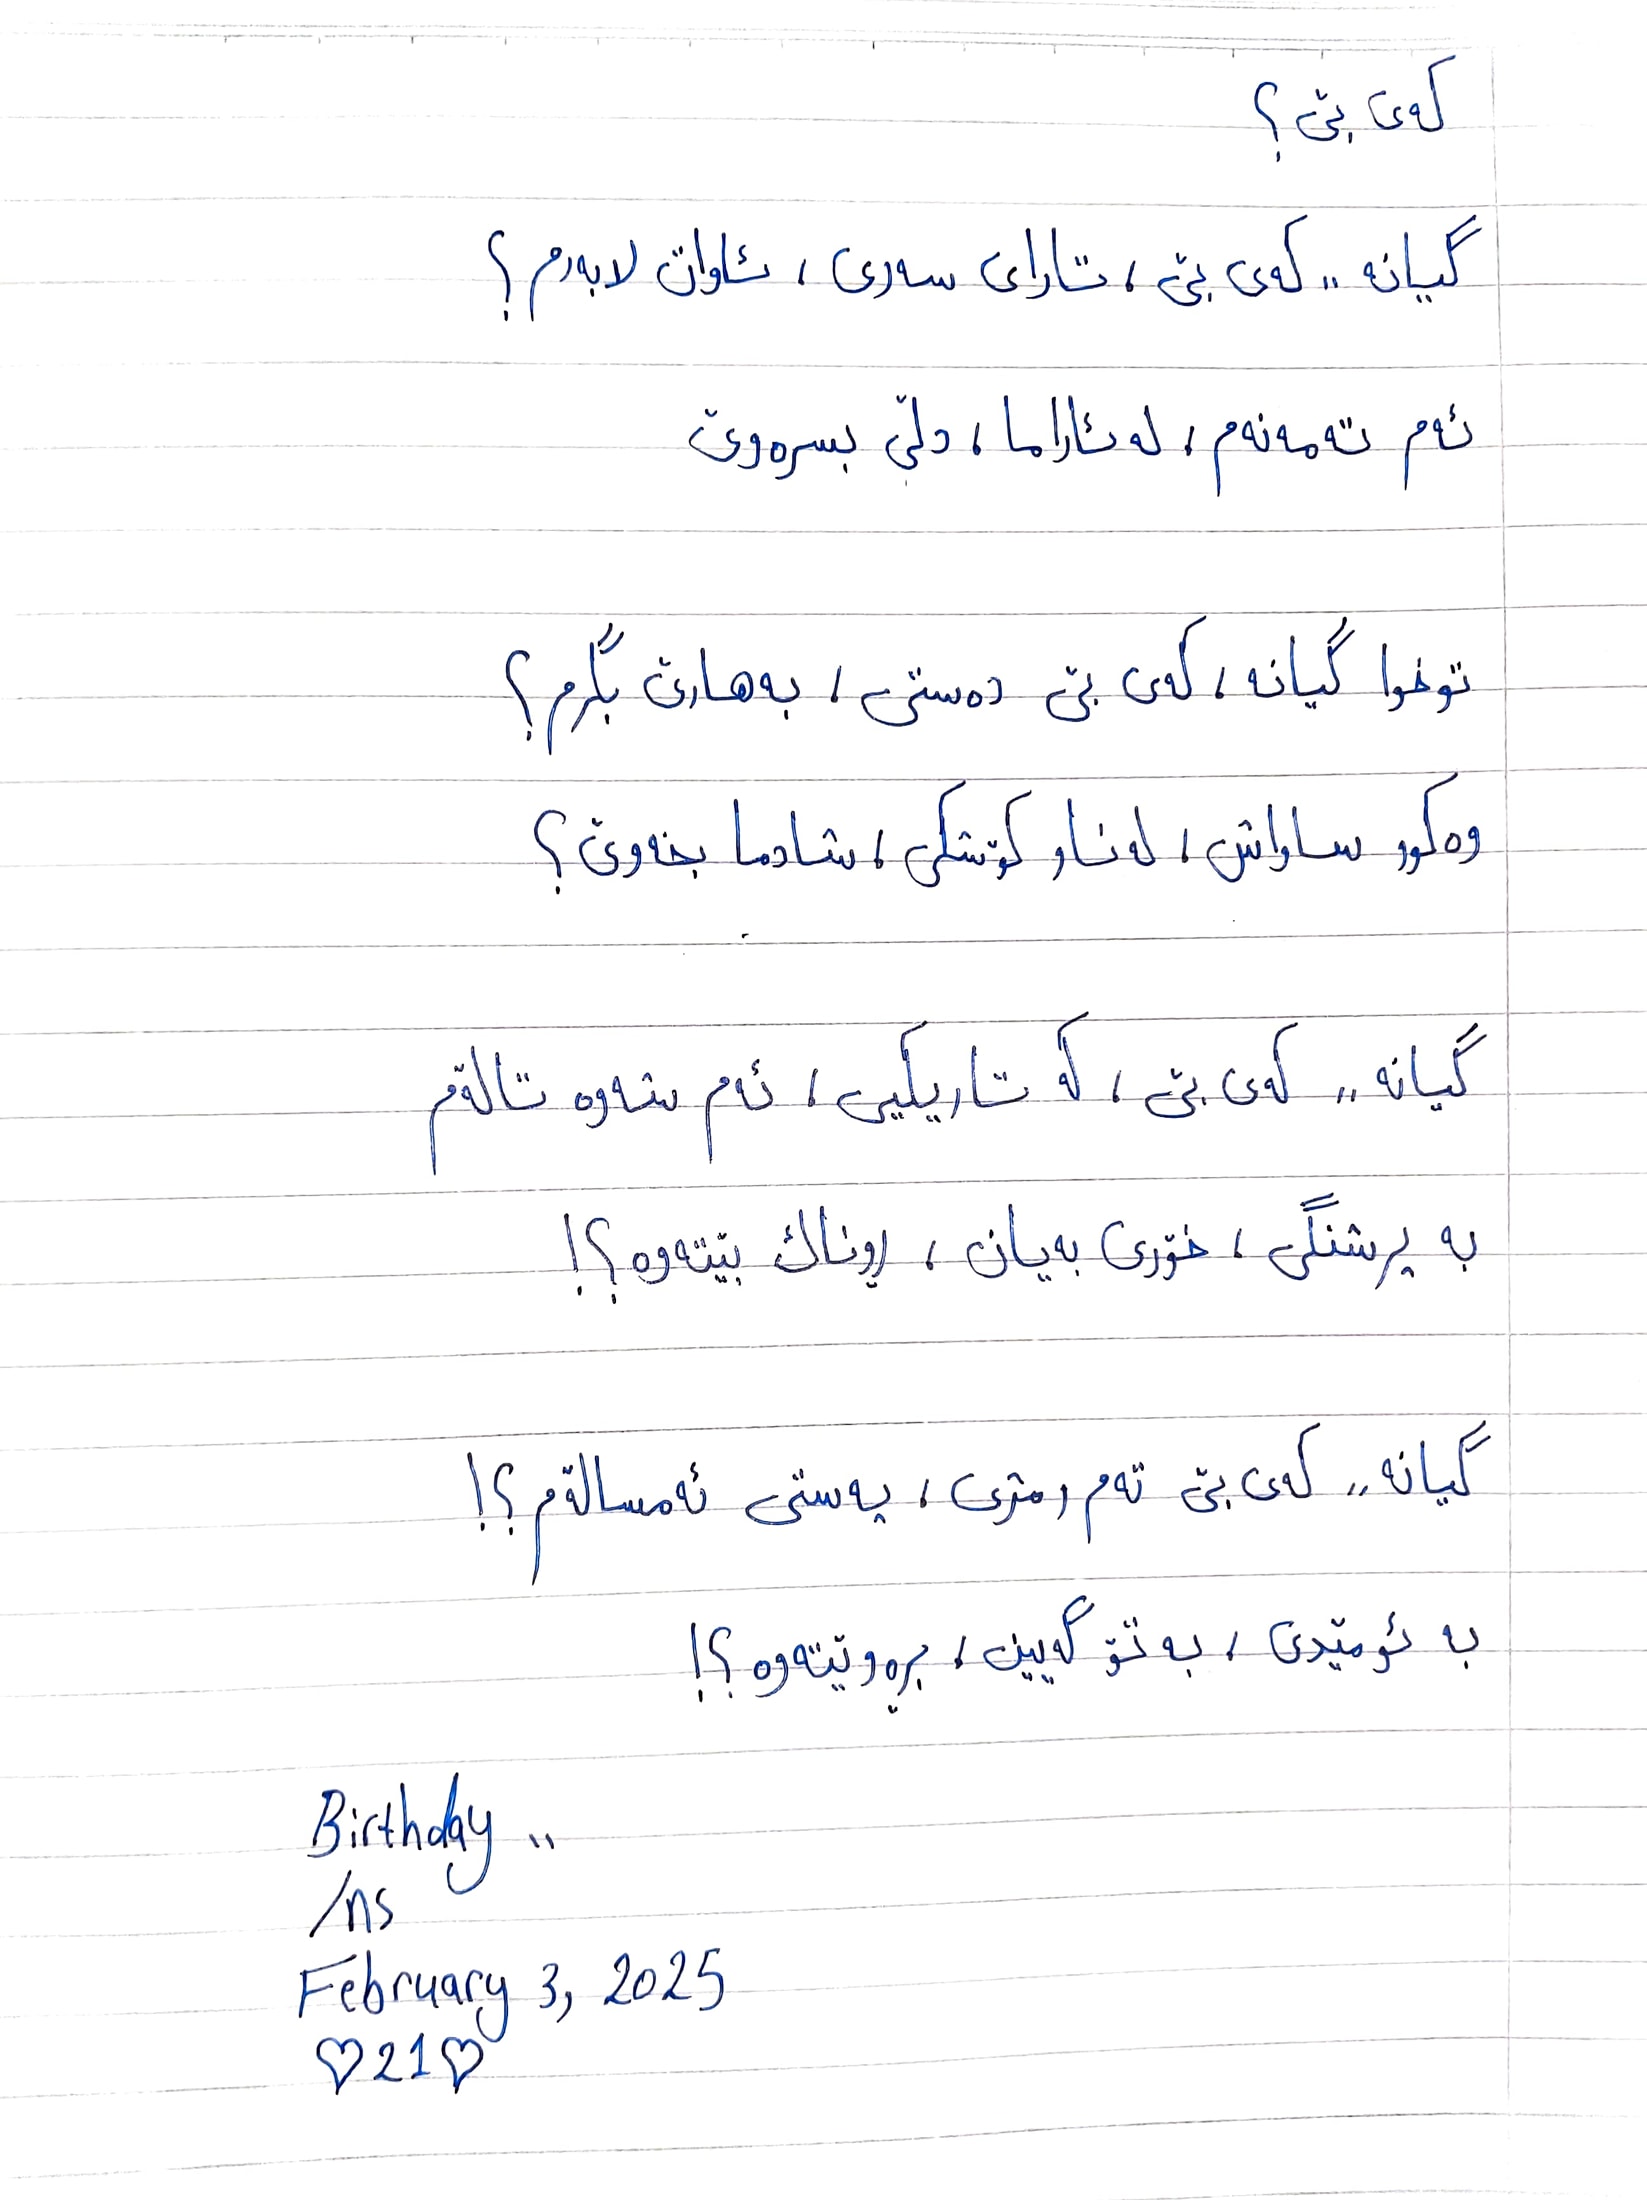 کەی بێ؟
گیانە ,, کەی بێ ، تارای سەری ، ئاوات لابەرم ؟
ئەم تەمەنەم ، لە ئاراما ، دڵێ بسرەوێ
توخوا گیانە ، کەی بێ دەستی ، بەهارێ بگرم ؟
وەکوو ساواش ، لەناو کۆشکی ، شادما بخەوێ ؟
گیانە ,, کەی بێ ، کە تاریکیی ، ئەم شەوە تاڵەم
بە پرشنگی ، خۆری بەیان ، ڕوناك بێتەوە ؟!
گیانە ,, کەی بێ تەم ومژی ، پەستی ئەمساڵەم ؟!
بە ئومێدی ، بە تۆ گەیین ، بڕەوێتەوە ؟!
Birthday ..
/ns
February 3, 2025
♡21♡